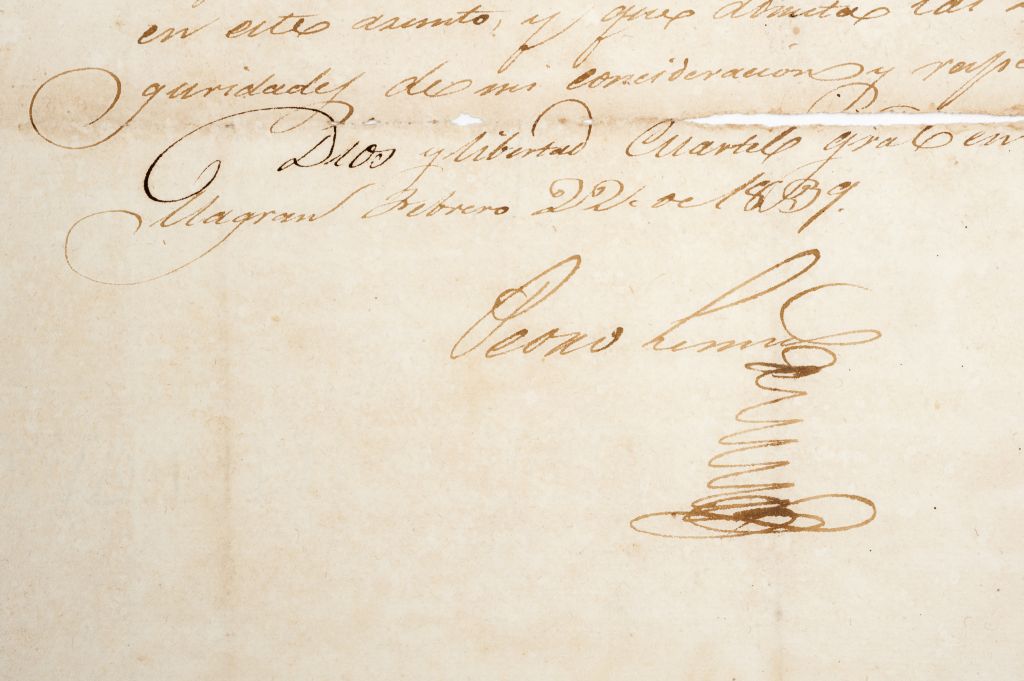 en este asunto, y que admita las
guridades de mi concideracion y respe
Dios y libertad Cuartel gral en
Villagran Febrero 22 de 1839.
Pedro Lemus